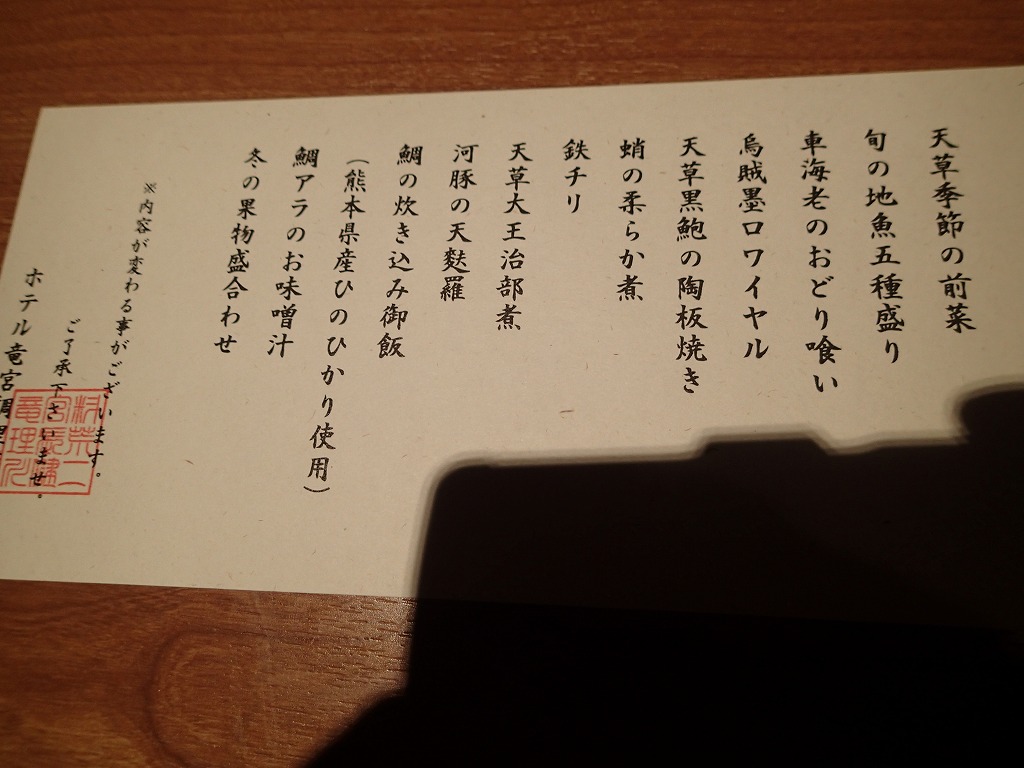 天草季節の前菜
旬の地魚五種盛り
車海老のおどり喰い
烏賊墨ロワイヤル
天草黒鮑の陶板焼き
蛸の柔らか煮
鉄チリ
天草大王治部煮
河豚の天麩羅
鯛の炊き込み御飯
（熊本県産ひのひかり使用）
鯛アラのお味噌汁
冬の果物盛合わせ
※内容が変わる事がございます。
ご了承下さいませ。
ホテル竜宮